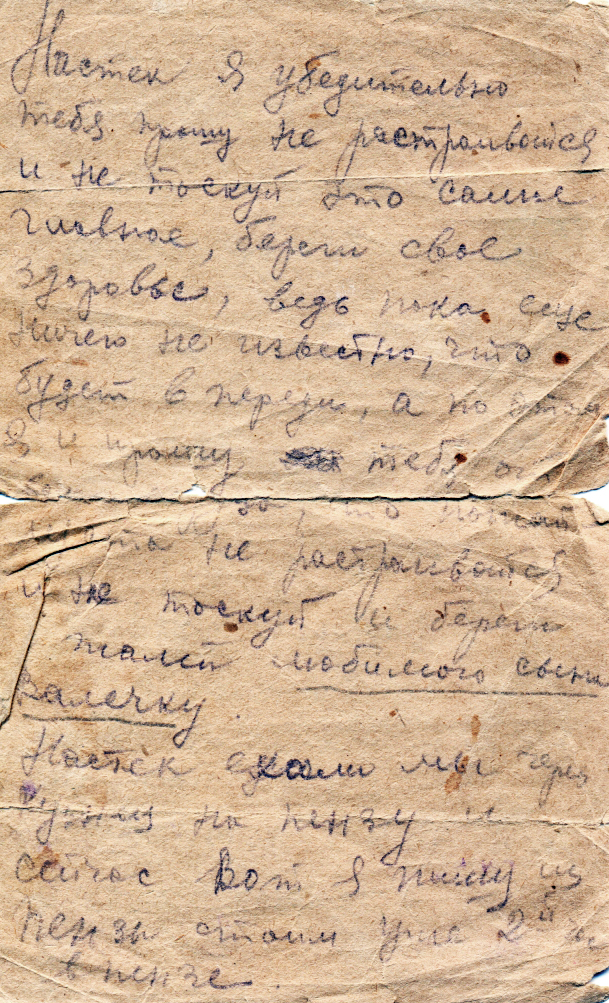 Настек я убедительно
тебя прошу не растраивайся
и не тоскуй это самое
главное, береги свое
здоровье, ведь пока еще
ничего не известно, что
будет в переди, а по этому
я и прошу тебя
не растраивайся
и не тоскуй и береги
жалей любимого сына
Валечку.
Настек ехали мы через
на пензу и
сейчас вот я пишу из
пензы стоим уже 2й
в пензе.